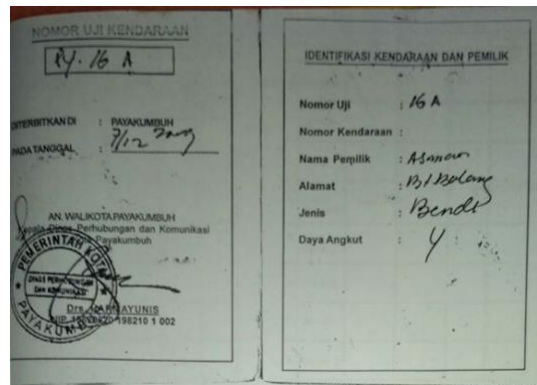 NOMOR UJI KENDARAAN
16 A
DITERBITKAN DI : PAYAKUMBUH
PADA TANGGAL : 7/12
AN. WALIKOTA PAYAKUMBUH
Kepala Dinas Perhubungan dan Komunikasi
Payakumbuh
PEMERINTAH KOTA
DINAS PERHUBUNGAN
DAN KOMUNIKASI
PAYAKUMBUH
Drs. YUNIS
NIP. 198210 1 002
IDENTIFIKASI KENDARAAN DAN PEMILIK
Nomor Uji : 16 A
Nomor Kendaraan :
Nama Pemilik :
Alamat :
Jenis : Bendi
Daya Angkut : 4